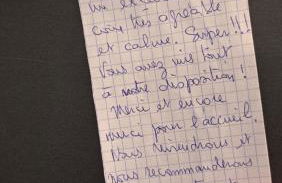 un
coin très agréable
et calme. Super !!!
Vous avez mis tout
à notre disposition !
Merci et encore
merci pour l'accueil.
Nous reviendrons et
nous recommanderons